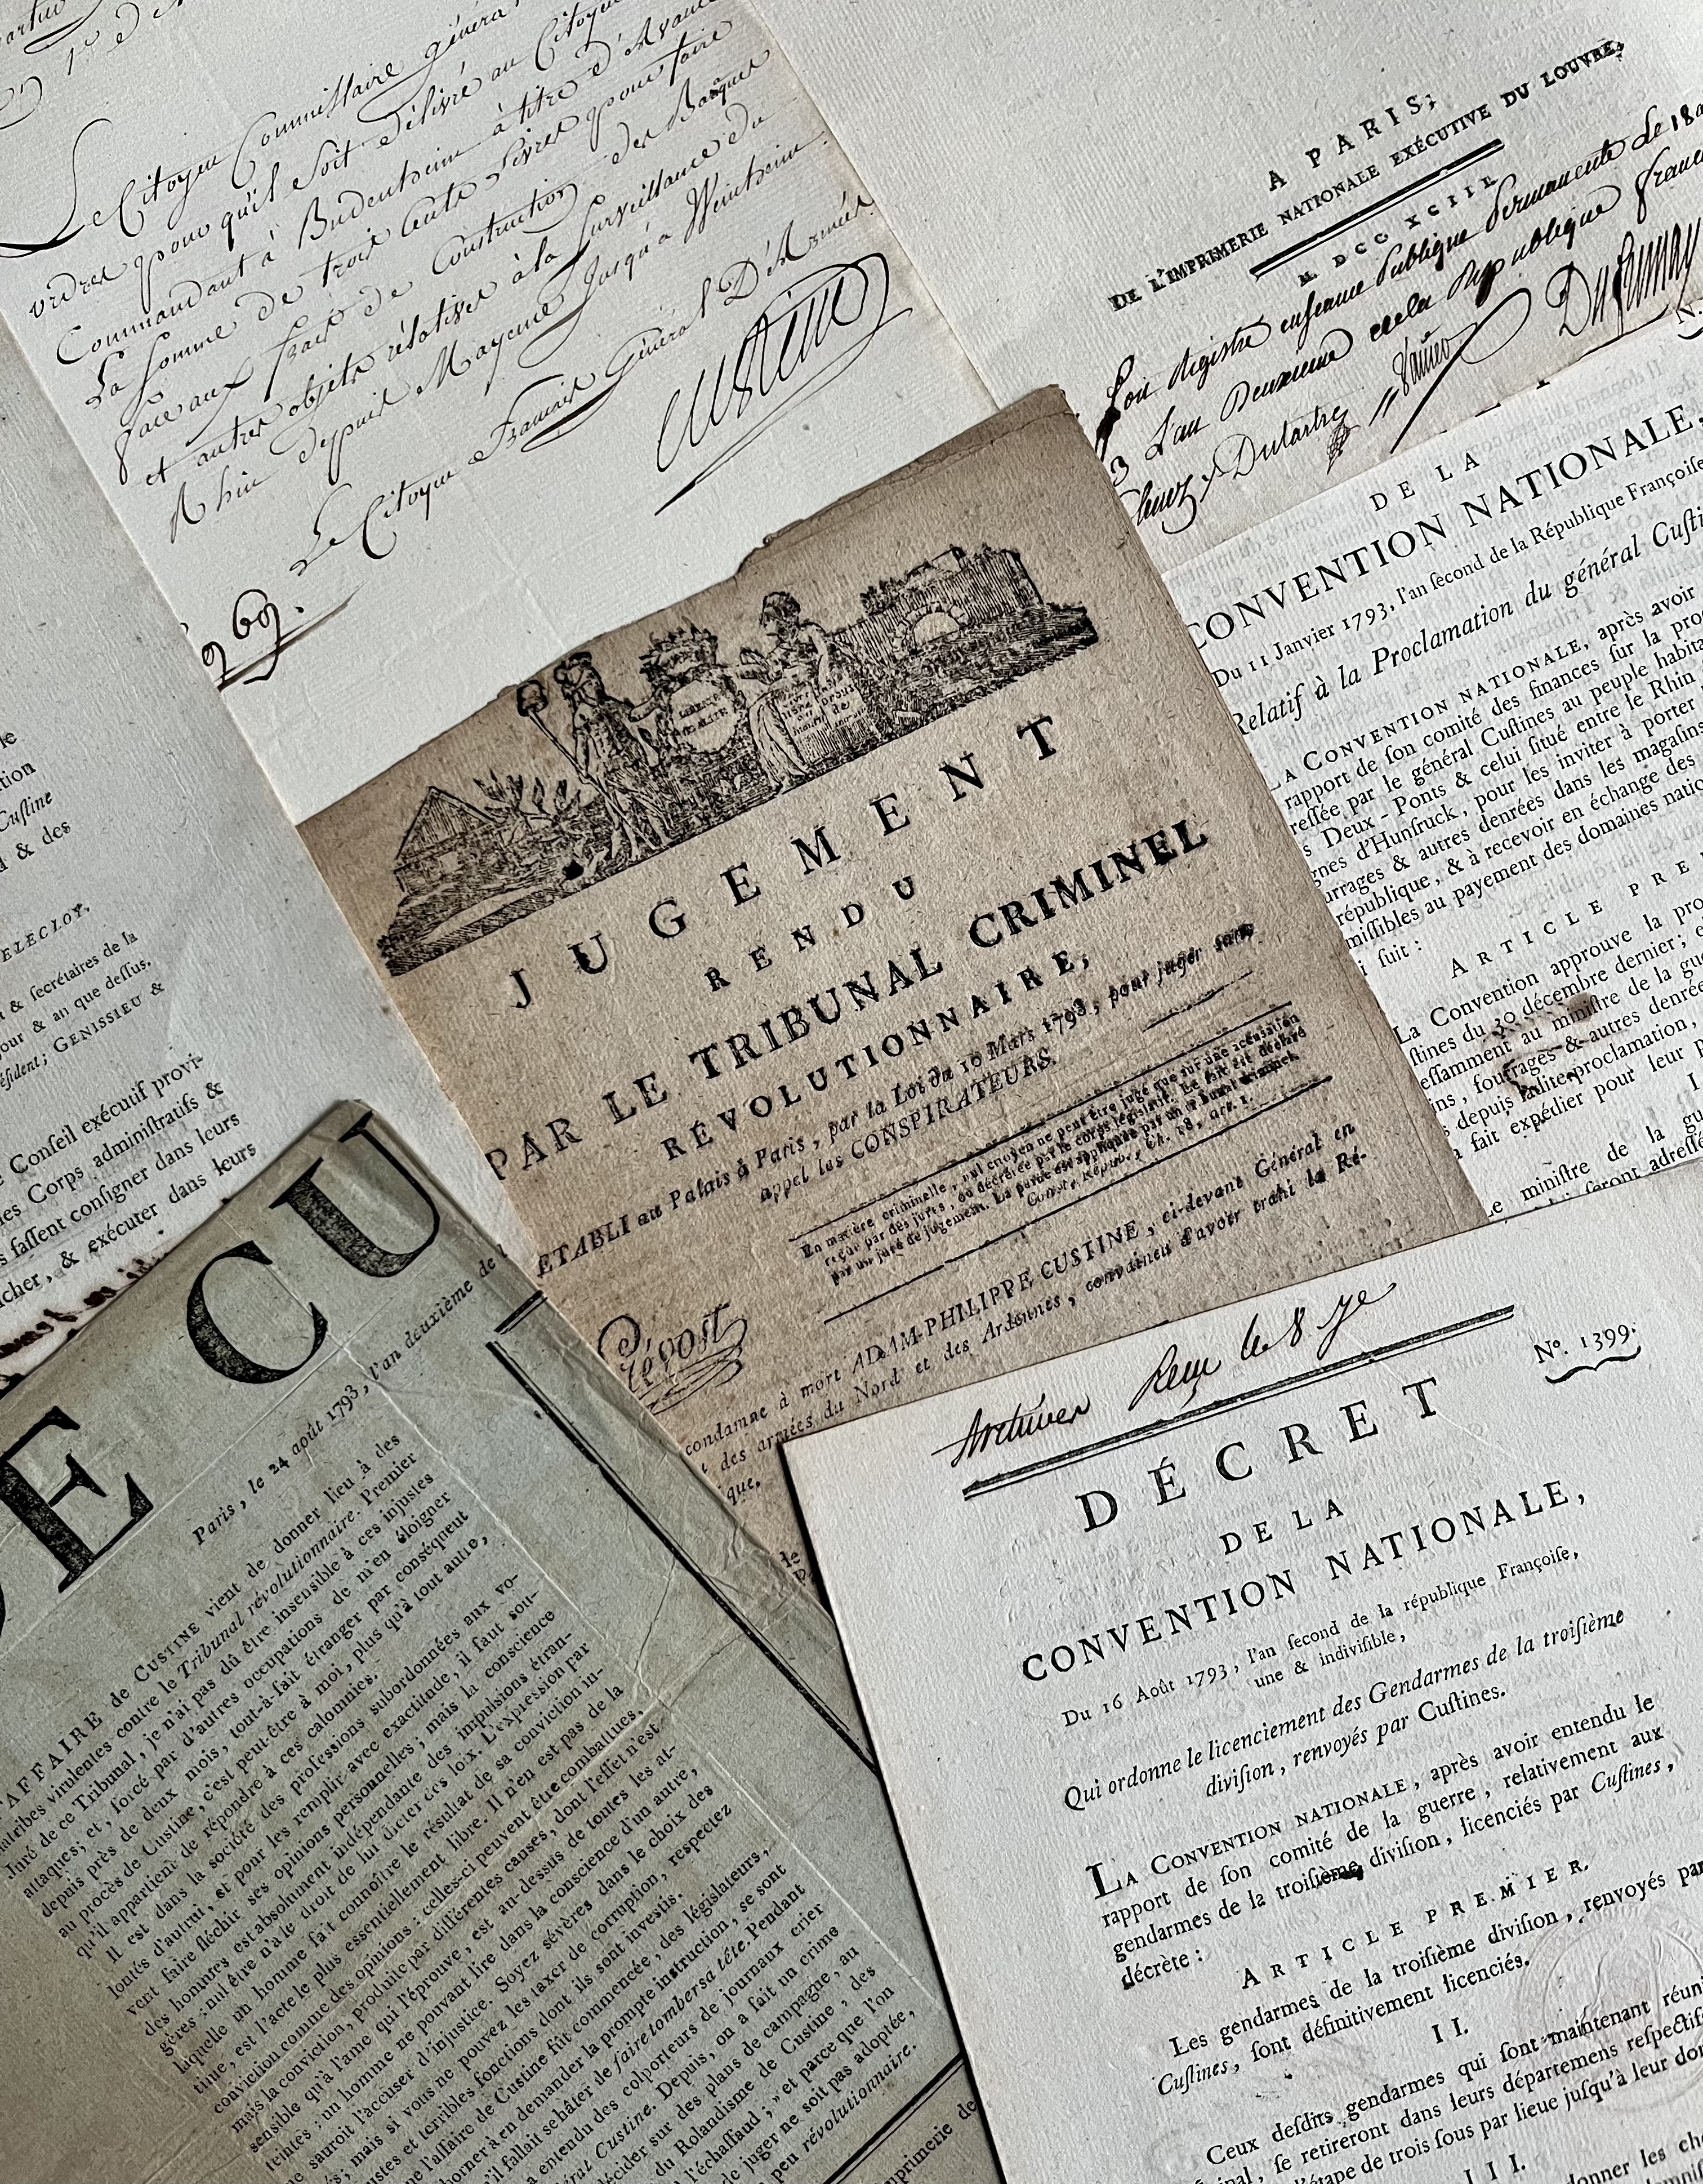 Le Citoyen Commissaire général
ordres pour qu'il soit délivré au Citoyen
Commandant à Budenheim à titre d'Avance
La somme de trois Cents Livres pour faire
face aux frais de Construction des Barques
et autres objets rélatifs à la Surveillance du
Rhin depuis Mayence Jusqu'à Weinheim.
Le Citoyen Français Général D'Armée
Custine
969.
A PARIS;
DE L'IMPRIMERIE NATIONALE EXÉCUTIVE DU LOUVRE,
M. DCC XCIII.
Soit Registré enseance Publique Permanente Le 18
93 L'an Deuxieme de la Republique francaise
Dutartre
DE LA
CONVENTION NATIONALE,
Du 11 Janvier 1793, l'an ſecond de la République Françoiſe
Relatif à la Proclamation du général Cuſti
LA CONVENTION NATIONALE, après avoir
rapport de ſon comité des finances ſur la pro
reſſée par le général Cuſtines au peuple habita
s Deux-Ponts & celui ſitué entre le Rhin
gnes d'Hunſruck, pour les inviter à porter
urrages & autres denrées dans les magaſins
république, & à recevoir en échange des
miſſibles au payement des domaines natio
i ſuit :
ARTICLE PRE
La Convention approuve la pro
ſtines du 30 décembre dernier; e
eſſamment au miniſtre de la gue
ins, fourages & autres denrée
s depuis ladite proclamation,
fait expédier pour leur p
I
Le miniſtre de la gu
ſeront adreſſé
le
tion
Cuſtine
& des
ELECLOY,
& ſecrétaires de la
our & an que deſſus.
éſident; GENISSIEU &
Conſeil exécutif provi-
les Corps adminiſtratifs &
s faſſent conſigner dans leurs
icher, & exécuter dans leurs
LIBERTÉ
EGALITE
JUGEMENT
RENDU
PAR LE TRIBUNAL CRIMINEL
RÉVOLUTIONNAIRE,
ETABLI au Palais à Paris, par la Loi du 10 Mars 1793, pour juger sans
appel les CONSPIRATEURS.
En matière criminelle, nul citoyen ne peut être jugé que sur une accusation
reçue par des jurés, ou décrétée par le corps législatif. Le fait est déclaré
par un juré de jugement. La peine est appliquée par un tribunal criminel.
condamne à mort ADAM-PHILIPPE CUSTINE, ci-devant Général en
des armées du Nord et des Ardennes, convaincu d'avoir trahi la Ré-
ique.
Prévost
DE CU
Paris, le 24 août 1793, l'an deuxième de l
AFFAIRE de CUSTINE vient de donner lieu à des
diatribes virulentes contre le Tribunal révolutionnaire. Premier
Juré de ce Tribunal, je n'ai pas dû être insensible à ces injustes
attaques; et, forcé par d'autres occupations de m'en éloigner
depuis près de deux mois, tout-à-fait étranger par conséquent
au procès de Custine, c'est peut-être à moi, plus qu'à tout autre,
qu'il appartient de répondre à ces calomnies.
Il est dans la société des professions subordonnées aux vo-
lontés d'autrui, et pour les remplir avec exactitude, il faut sou-
vent faire fléchir ses opinions personnelles; mais la conscience
des hommes est absolument indépendante des impulsions étran-
gères : nul être n'a le droit de lui dicter des loix. L'expression par
laquelle un homme fait connoître le résultat de sa conviction in-
time, est l'acte le plus essentiellement libre. Il n'en est pas de la
conviction comme des opinions : celles-ci peuvent être combattues,
mais la conviction, produite par différentes causes, dont l'effet n'est
sensible qu'à l'ame qui l'éprouve, est au-dessus de toutes les at-
teintes : un homme ne pouvant lire dans la conscience d'un autre,
ne sauroit l'accuser d'injustice. Soyez sévères dans le choix des
s; mais si vous ne pouvez les taxer de corruption, respectez
ustes et terribles fonctions dont ils sont investis.
ne l'affaire de Custine fût commencée, des législateurs,
borner à en demander la prompte instruction, se sont
'il falloit se hâter de faire tomber sa tête. Pendant
a entendu des colporteurs de journaux crier
éral Custine. Depuis, on a fait un crime
décider sur des plans de campagne, au
du Rolandisme de Custine, des
l'échaffaud; » et parce que l'on
de juger ne soit pas adoptée,
peu révolutionnaire.
mprimerie de
Archives Reçu le 8 7bre
N°. 1399.
DÉCRET
DE LA
CONVENTION NATIONALE,
Du 16 Août 1793, l'an ſecond de la république Françoiſe,
une & indiviſible,
Qui ordonne le licenciement des Gendarmes de la troiſième
diviſion, renvoyés par Cuſtines.
LA CONVENTION NATIONALE, après avoir entendu le
rapport de ſon comité de la guerre, relativement aux
gendarmes de la troiſième diviſion, licenciés par Cuſtines,
décrète :
ARTICLE PREMIER.
Les gendarmes de la troiſième diviſion, renvoyés par
Cuſtines, ſont définitivement licenciés.
II.
Ceux deſdits gendarmes qui ſont maintenant réuni
inal, ſe retireront dans leurs départemens reſpectifs
l'étape de trois ſous par lieue juſqu'à leur dom
III.
donner les che